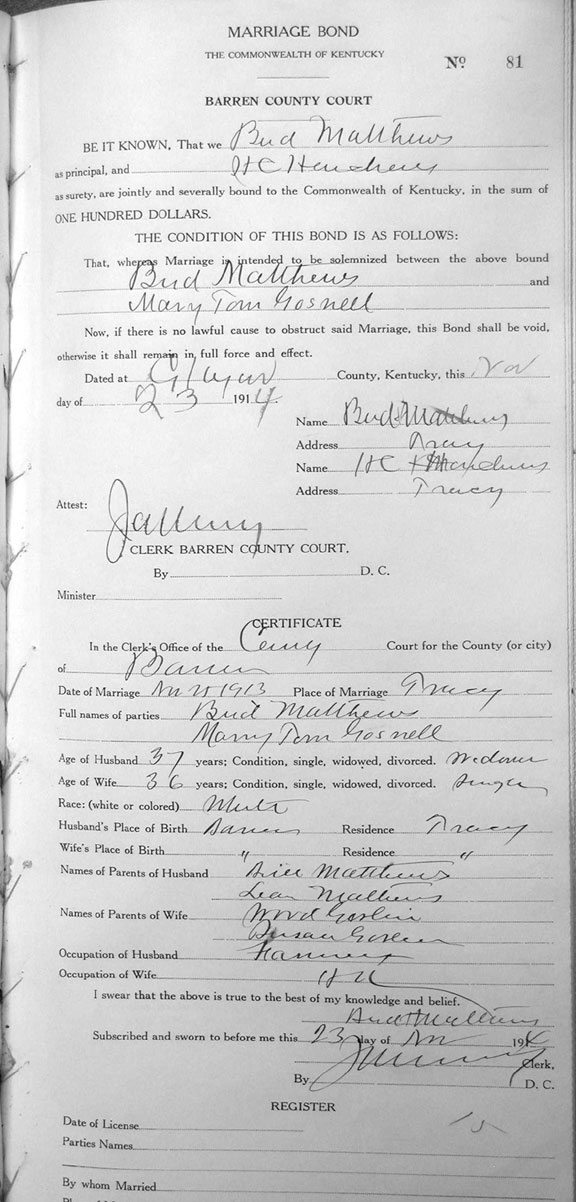 MARRIAGE BOND
THE COMMONWEALTH OF KENTUCKY
Nº 81
BARREN COUNTY COURT
BE IT KNOWN, That we Bud Matthews
as principal, and HC
as surety, are jointly and severally bound to the Commonwealth of Kentucky, in the sum of
ONE HUNDRED DOLLARS.
THE CONDITION OF THIS BOND IS AS FOLLOWS:
That, whereas Marriage is intended to be solemnized between the above bound
Bud Matthews and
Mary Tom Gosnell
Now, if there is no lawful cause to obstruct said Marriage, this Bond shall be void,
otherwise it shall remain in full force and effect.
Dated at County, Kentucky, this Nov
day of 23 1914.
Name Bud Matthews
Address Tracy
Name HC
Address Tracy
Attest:
CLERK BARREN COUNTY COURT.
By D. C.
Minister
CERTIFICATE
In the Clerk's Office of the Court for the County (or city)
of Barren
Date of Marriage 1913 Place of Marriage Tracy
Full names of parties Bud Matthews
Mary Tom Gosnell
Age of Husband 37 years; Condition, single, widowed, divorced. Widower
Age of Wife 36 years; Condition, single, widowed, divorced. Single
Race: (white or colored) White
Husband's Place of Birth Barren Residence Tracy
Wife's Place of Birth " Residence "
Names of Parents of Husband Bill Matthews
Matthews
Names of Parents of Wife
Susan
Occupation of Husband
Occupation of Wife
I swear that the above is true to the best of my knowledge and belief.
Bud Matthews
Subscribed and sworn to before me this 23 day of Nov 1914
Clerk,
By D. C.
REGISTER
Date of License
Parties Names
By whom Married